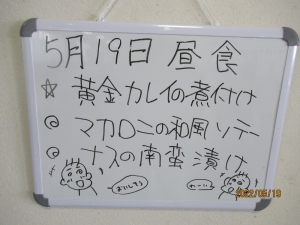 5月19日 昼食
☆ 黄金カレイの煮付け
◎ マカロニの和風ソテー
◎ ナスの南蛮漬け
わーい!
2022/05/19